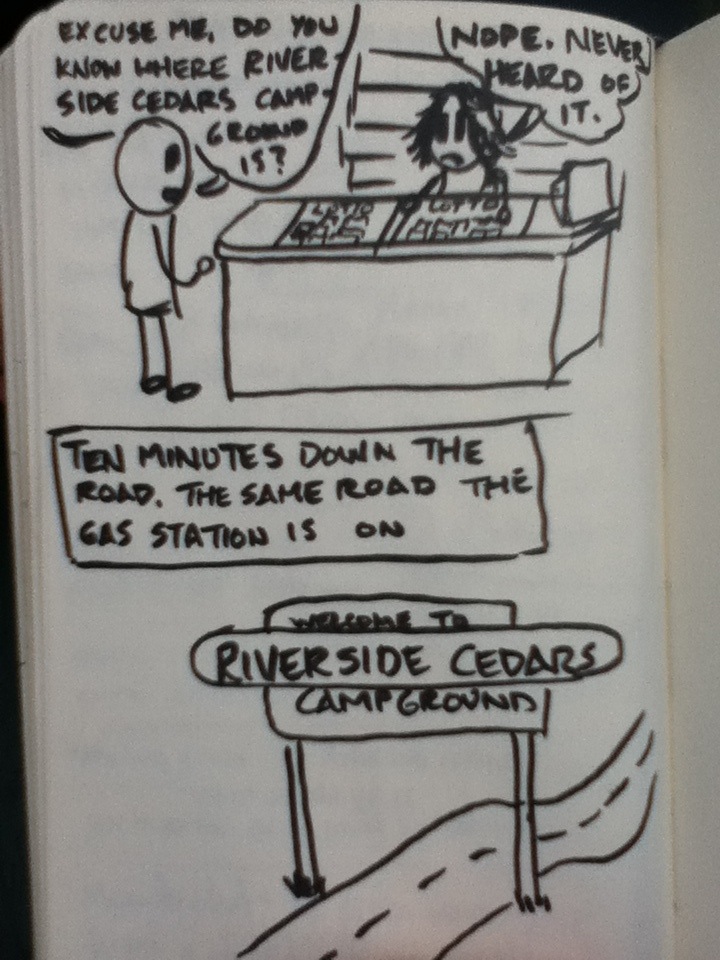 EXCUSE ME, DO YOU
KNOW WHERE RIVER-
SIDE CEDARS CAMP-
GROUND
IS?
NOPE. NEVER
HEARD OF
IT.
LOTTO
LOTTO
TEN MINUTES DOWN THE
ROAD. THE SAME ROAD THE
GAS STATION IS ON
WELCOME TO
RIVERSIDE CEDARS
CAMPGROUND